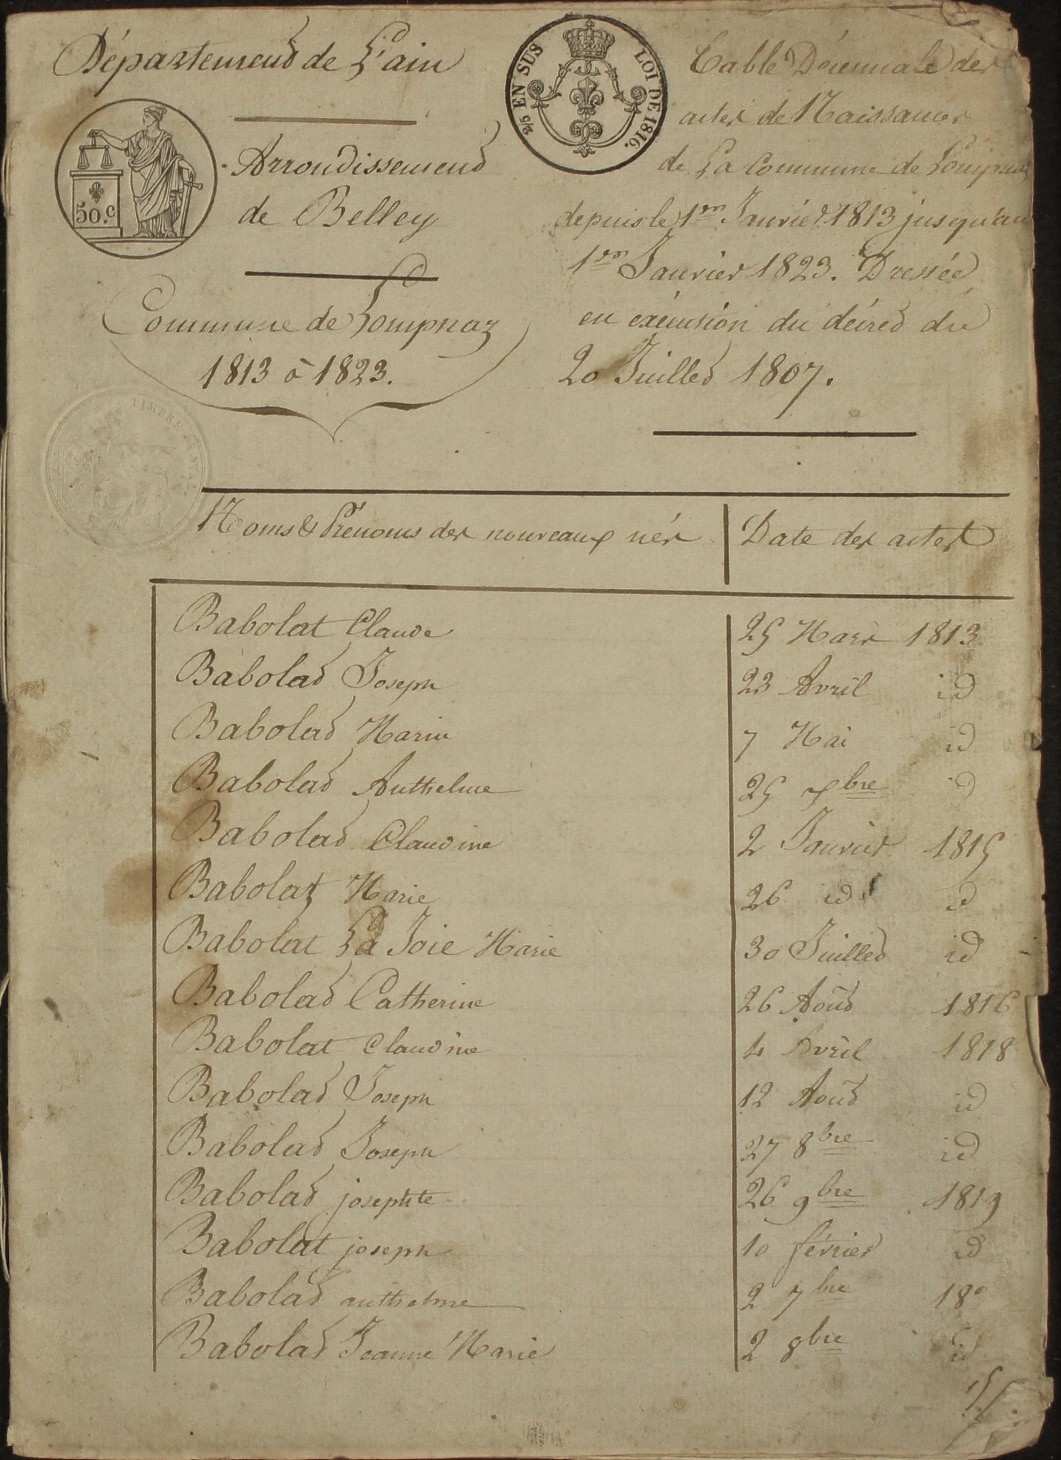 Département de L'ain
Arrondissement
de Belley
Commune de Lompnaz
1813 à 1823.
50.c
2/5 EN SUS LOI DE 1816.
TIMBRE
Table Décennale des
actes de Naissances
de La Commune de Lompnaz
depuis le 1er Janvier 1813 jusqu'au
1er Janvier 1823. Dressée
en exécution du décret du
20 Juillet 1807.
Noms & Prénoms des nouveaux nés Date des actes
Babolat Claude 25 Mars 1813
Babolat Joseph 23 Avril id
Babolat Marie 7 Mai id
Babolat Anthelme 25 7bre id
Babolat Claudine 2 Janvier 1815
Babolat Marie 26 id id
Babolat La Joie Marie 30 Juillet id
Babolat Catherine 26 Août 1816
Babolat Claudine 4 Avril 1818
Babolat Joseph 12 Août id
Babolat Joseph 27 8bre id
Babolat josephte 26 9bre 1819
Babolat joseph 10 février id
Babolat anthelme 2 7bre
Babolat Jeanne Marie 2 8bre id